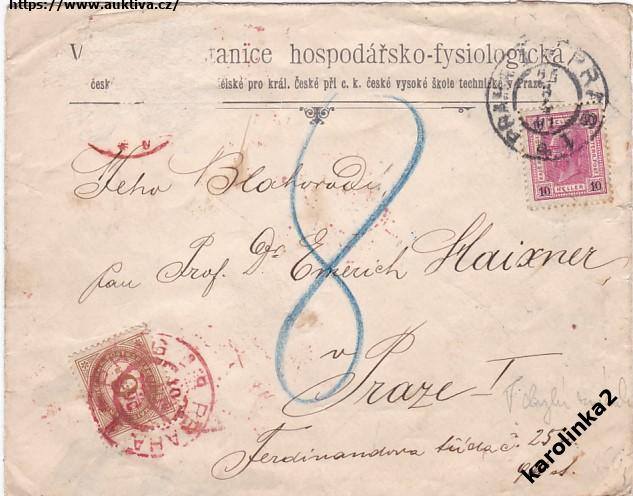 https://www.auktiva.cz/
V tanice hospodářsko-fysiologická
česk ělské pro král. české při c. k. české vysoké škole technické v Praze.
10 HELLER 10
8
Jeho Blahorodí
pan Prof. Dr Emerich Maixner
v
Praze I
Ferdinandova třída č. 25
PRAHA
karolinka2